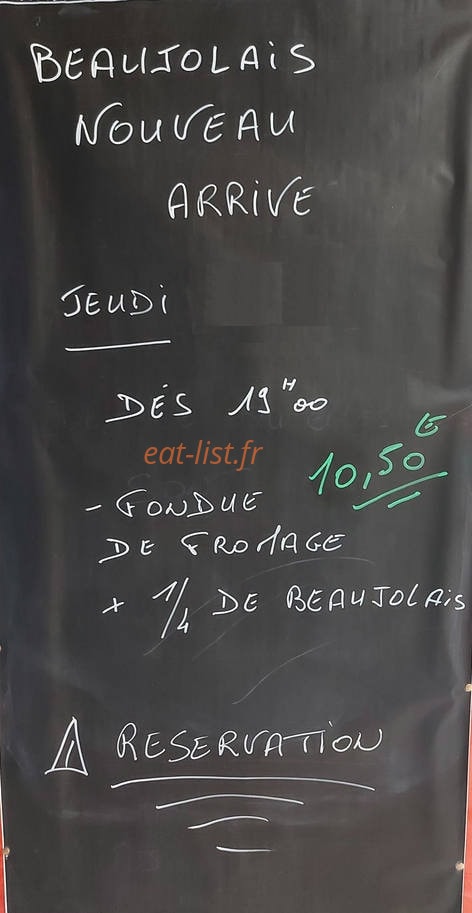 BEAUJOLAIS
NOUVEAU
ARRIVE
JEUDI
DÉS 19H00
eat-list.fr
10,50€
- FONDUE
DE FROMAGE
+ 1/4 DE BEAUJOLAIS
⚠ RESERVATION